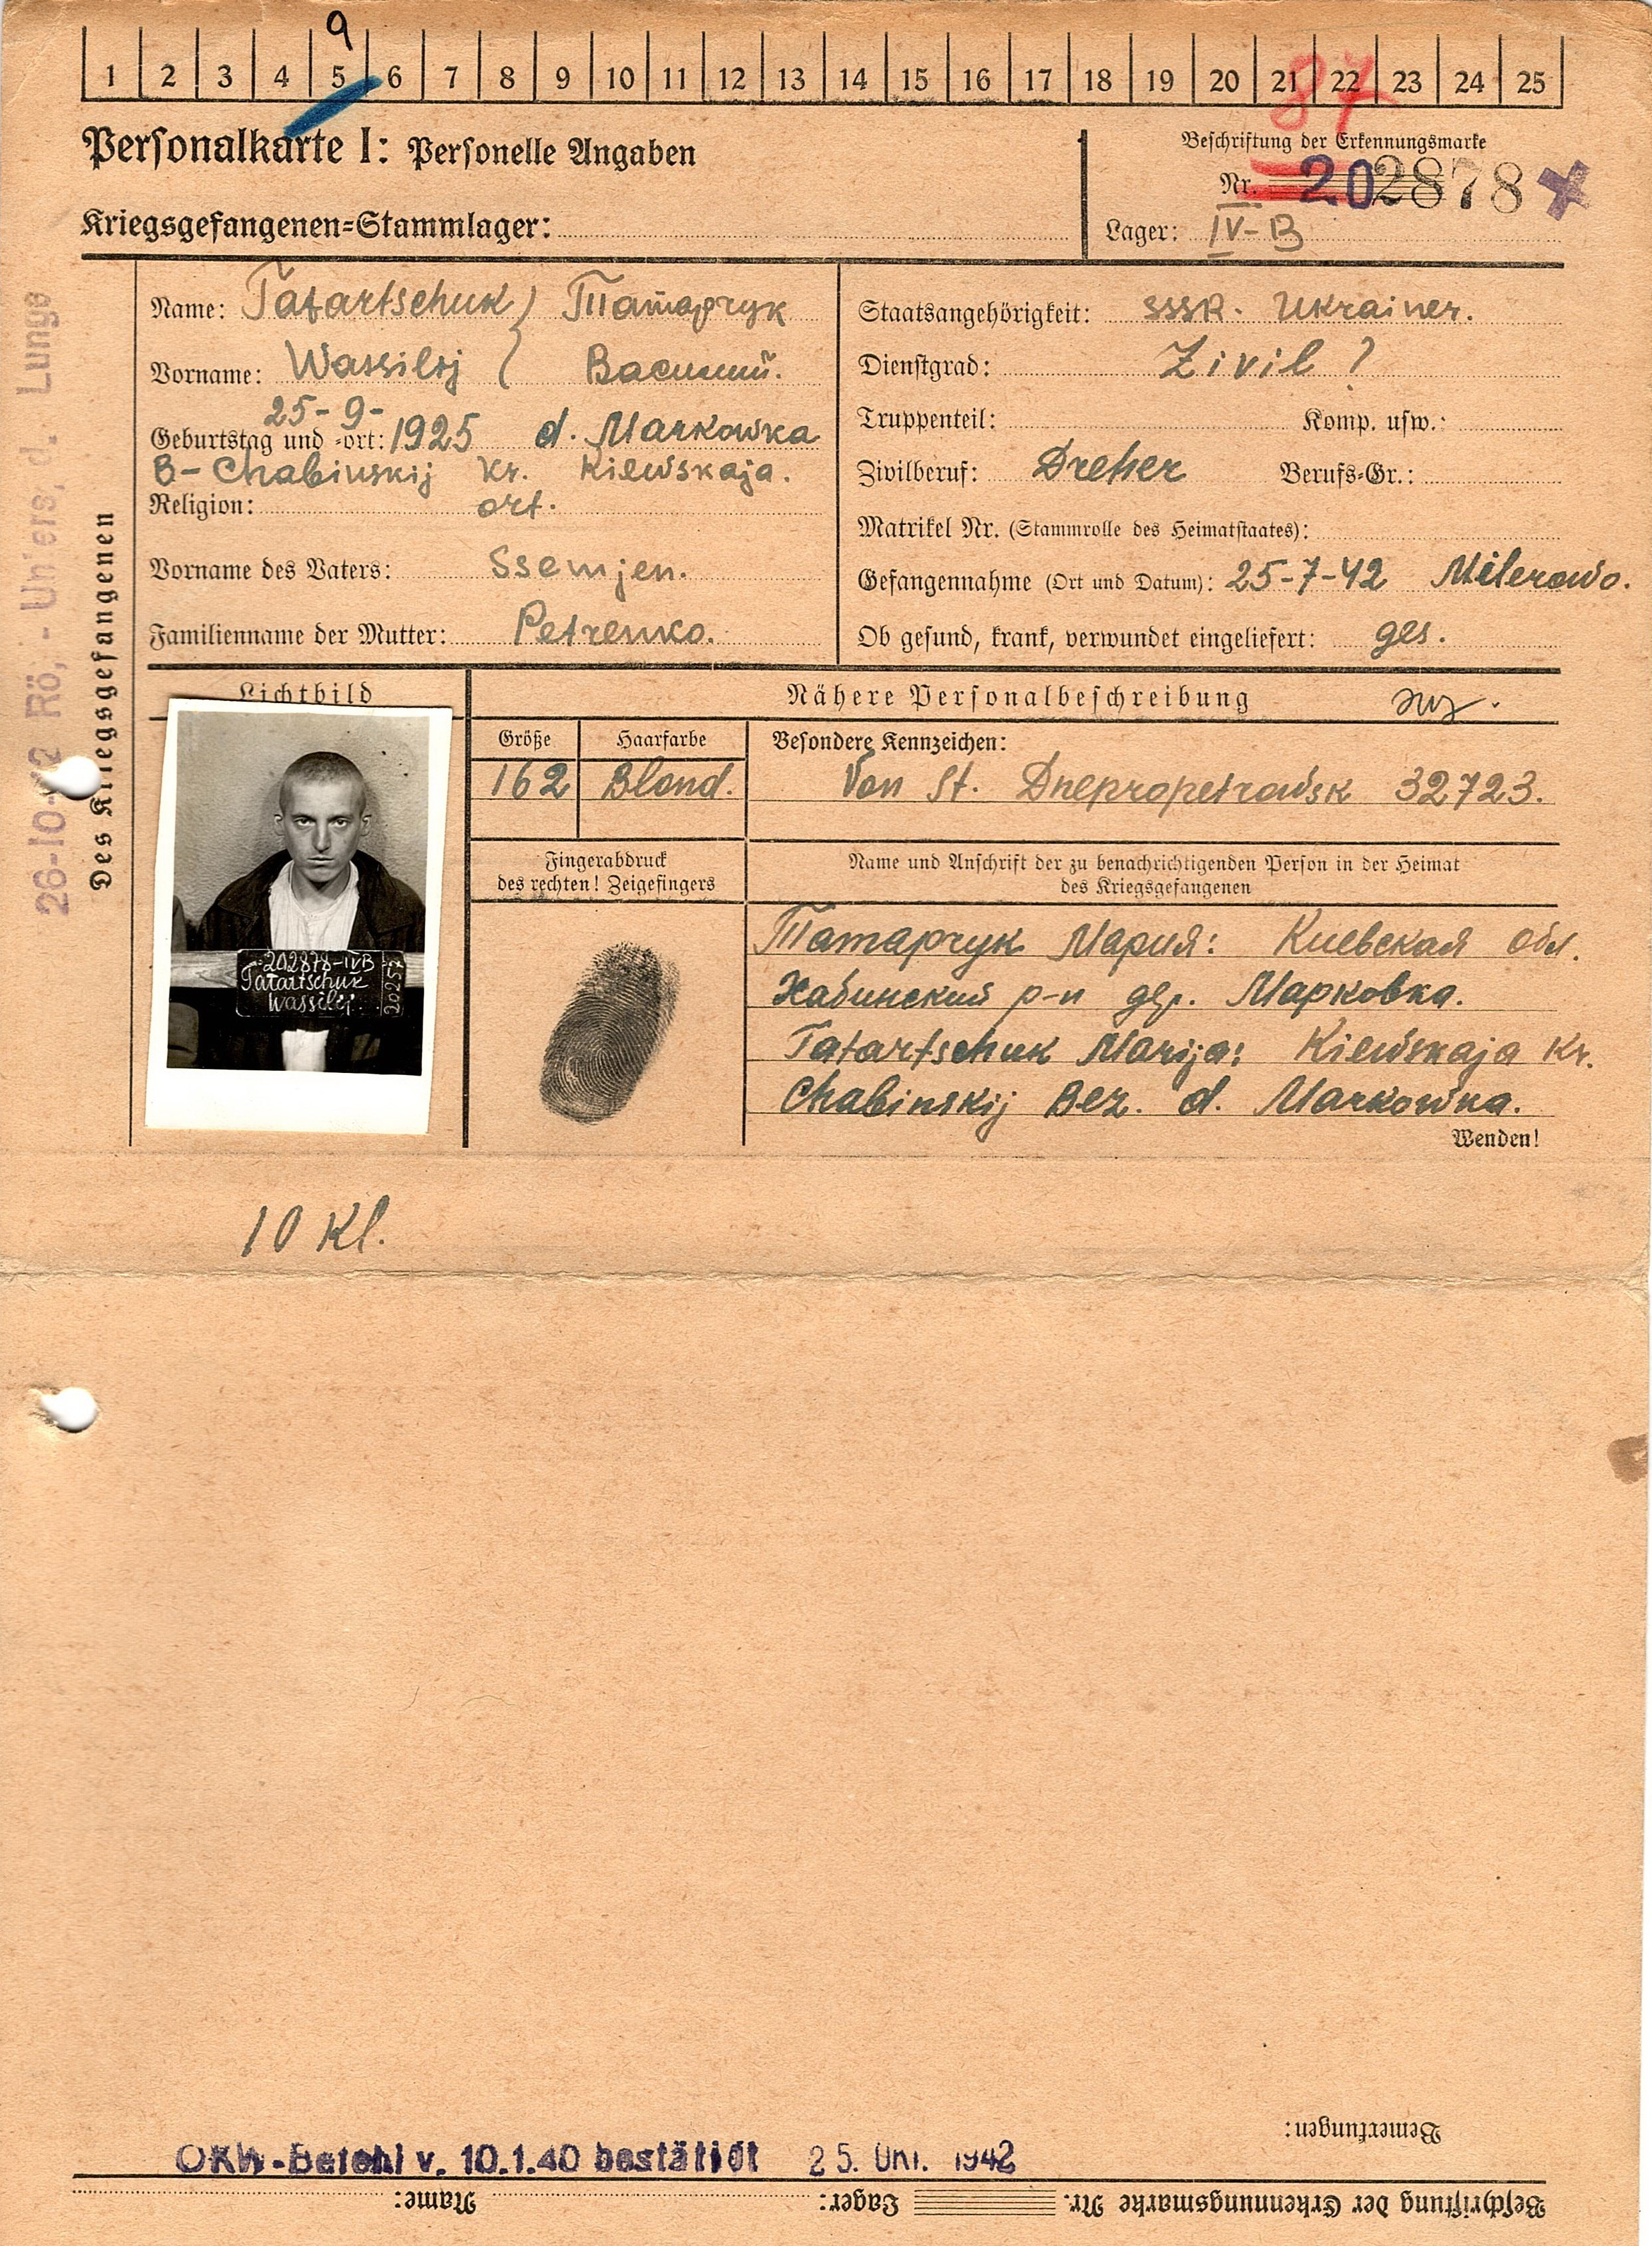 9
1 2 3 4 5 6 7 8 9 10 11 12 13 14 15 16 17 18 19 20 21 22 23 24 25
87
Personalkarte I: Personelle Angaben
Beschriftung der Erkennungsmarke
Nr. 202878
Kriegsgefangenen-Stammlager:
Lager: IV-B
Des Kriegsgefangenen
26-10-42 Rö.- Unters. d. Lunge
Name: Tatartschuk Татарчук
Vorname: Wassilij Василий.
25-9-
Geburtstag und -ort: 1925 d. Markowka
B-Chabinskij Kr. Kiewskaja.
Religion: ort.
Vorname des Vaters: Ssemjen.
Familienname der Mutter: Petrenko.
Staatsangehörigkeit: SSSR. Ukrainer.
Dienstgrad: Zivil ?
Truppenteil: Komp. usw.:
Zivilberuf: Dreher Berufs-Gr.:
Matrikel Nr. (Stammrolle des Heimatstaates):
Gefangennahme (Ort und Datum): 25-7-42 Milerowo.
Ob gesund, krank, verwundet eingeliefert: ges.
Lichtbild
Nähere Personalbeschreibung
Größe Haarfarbe Besondere Kennzeichen:
162 Blond. Von St. Dnepropetrowsk 32723.
Fingerabdruck
des rechten! Zeigefingers
Name und Anschrift der zu benachrichtigenden Person in der Heimat
des Kriegsgefangenen
202878-IVB
Tatartschuk
Wassilij.
20257
Татарчук Мария: Киевская обл.
Хабинский р-н дер. Марковка.
Tatartschuk Marija: Kiewskaja Kr.
Chabinskij Bez. d. Markowka.
Wenden!
10 Kl.
Bemerkungen:
OKW-Befehl v. 10.1.40 bestätigt 25. Okt. 1942
Beschriftung der Erkennungsmarke Nr. Lager: Name: